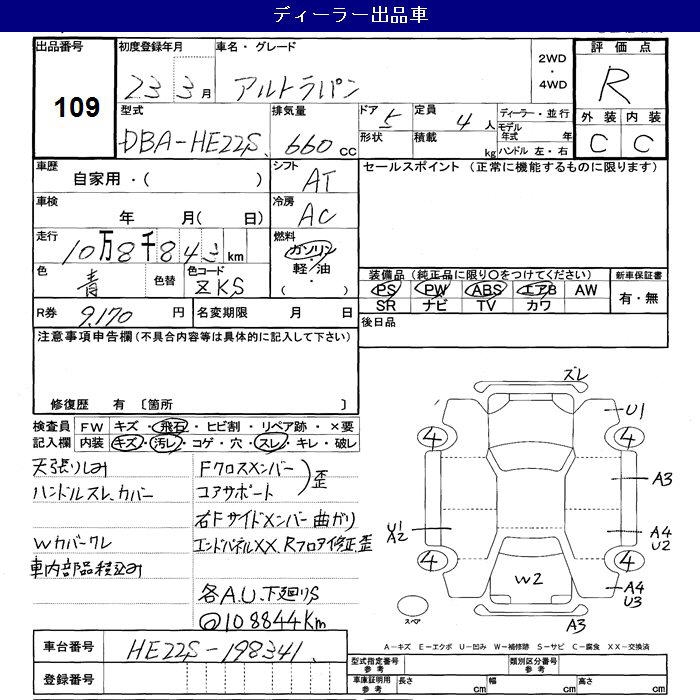 ディーラー出品車
出品番号
109
初度登録年月
23 3月
車名・グレード
アルトラパン
2WD
・
4WD
評価点
R
型式
DBA-HE22S
排気量
660 cc
ドア 5
形状
定員 4 人
積載 kg
ディーラー・並行
モデル年式 年
ハンドル 左・右
外装 内装
C C
車歴
自家用・( )
シフト
AT
セールスポイント (正常に機能するものに限ります)
車検
年 月( 日)
冷房
AC
走行
10万8千843 km
燃料
ガソリン
・
軽/油
・
( )
色
青
色替
色コード
ZKS
装備品 (純正品に限り○をつけてください)
PS PW ABS エアB AW
SR ナビ TV カワ
新車保証書
有・無
R券 9,170 円
名変期限 月 日
後日品
注意事項申告欄(不具合内容等は具体的に記入して下さい)
修復歴 有 〔箇所 〕
検査員 FW キズ・飛石・ヒビ割・リペア跡・×要
記入欄 内装 キズ・汚レ・コゲ・穴・スレ・キレ・破レ
天張りしみ
ハンドルスレ、カバー
Wカバークレ
車内部品積込み
Fクロスメンバー
コアサポート
)歪
右Fサイドメンバー曲ガリ
エンドパネルXX、Rフロア修正歪
各A.U.下廻りS
◎108844Km
ズレ
U1
4 4
A3
U1
A2
A4
U2
4 4
W2
A4
U3
スペア
A3
A−キズ E−エクボ U−凹み W−補修跡 S−サビ C−腐食 XX−交換済
車台番号
HE22S-198341
登録番号
型式指定番号
参考
類別区分番号
参考
車庫証明用
参考
長さ cm
幅 cm
高さ cm